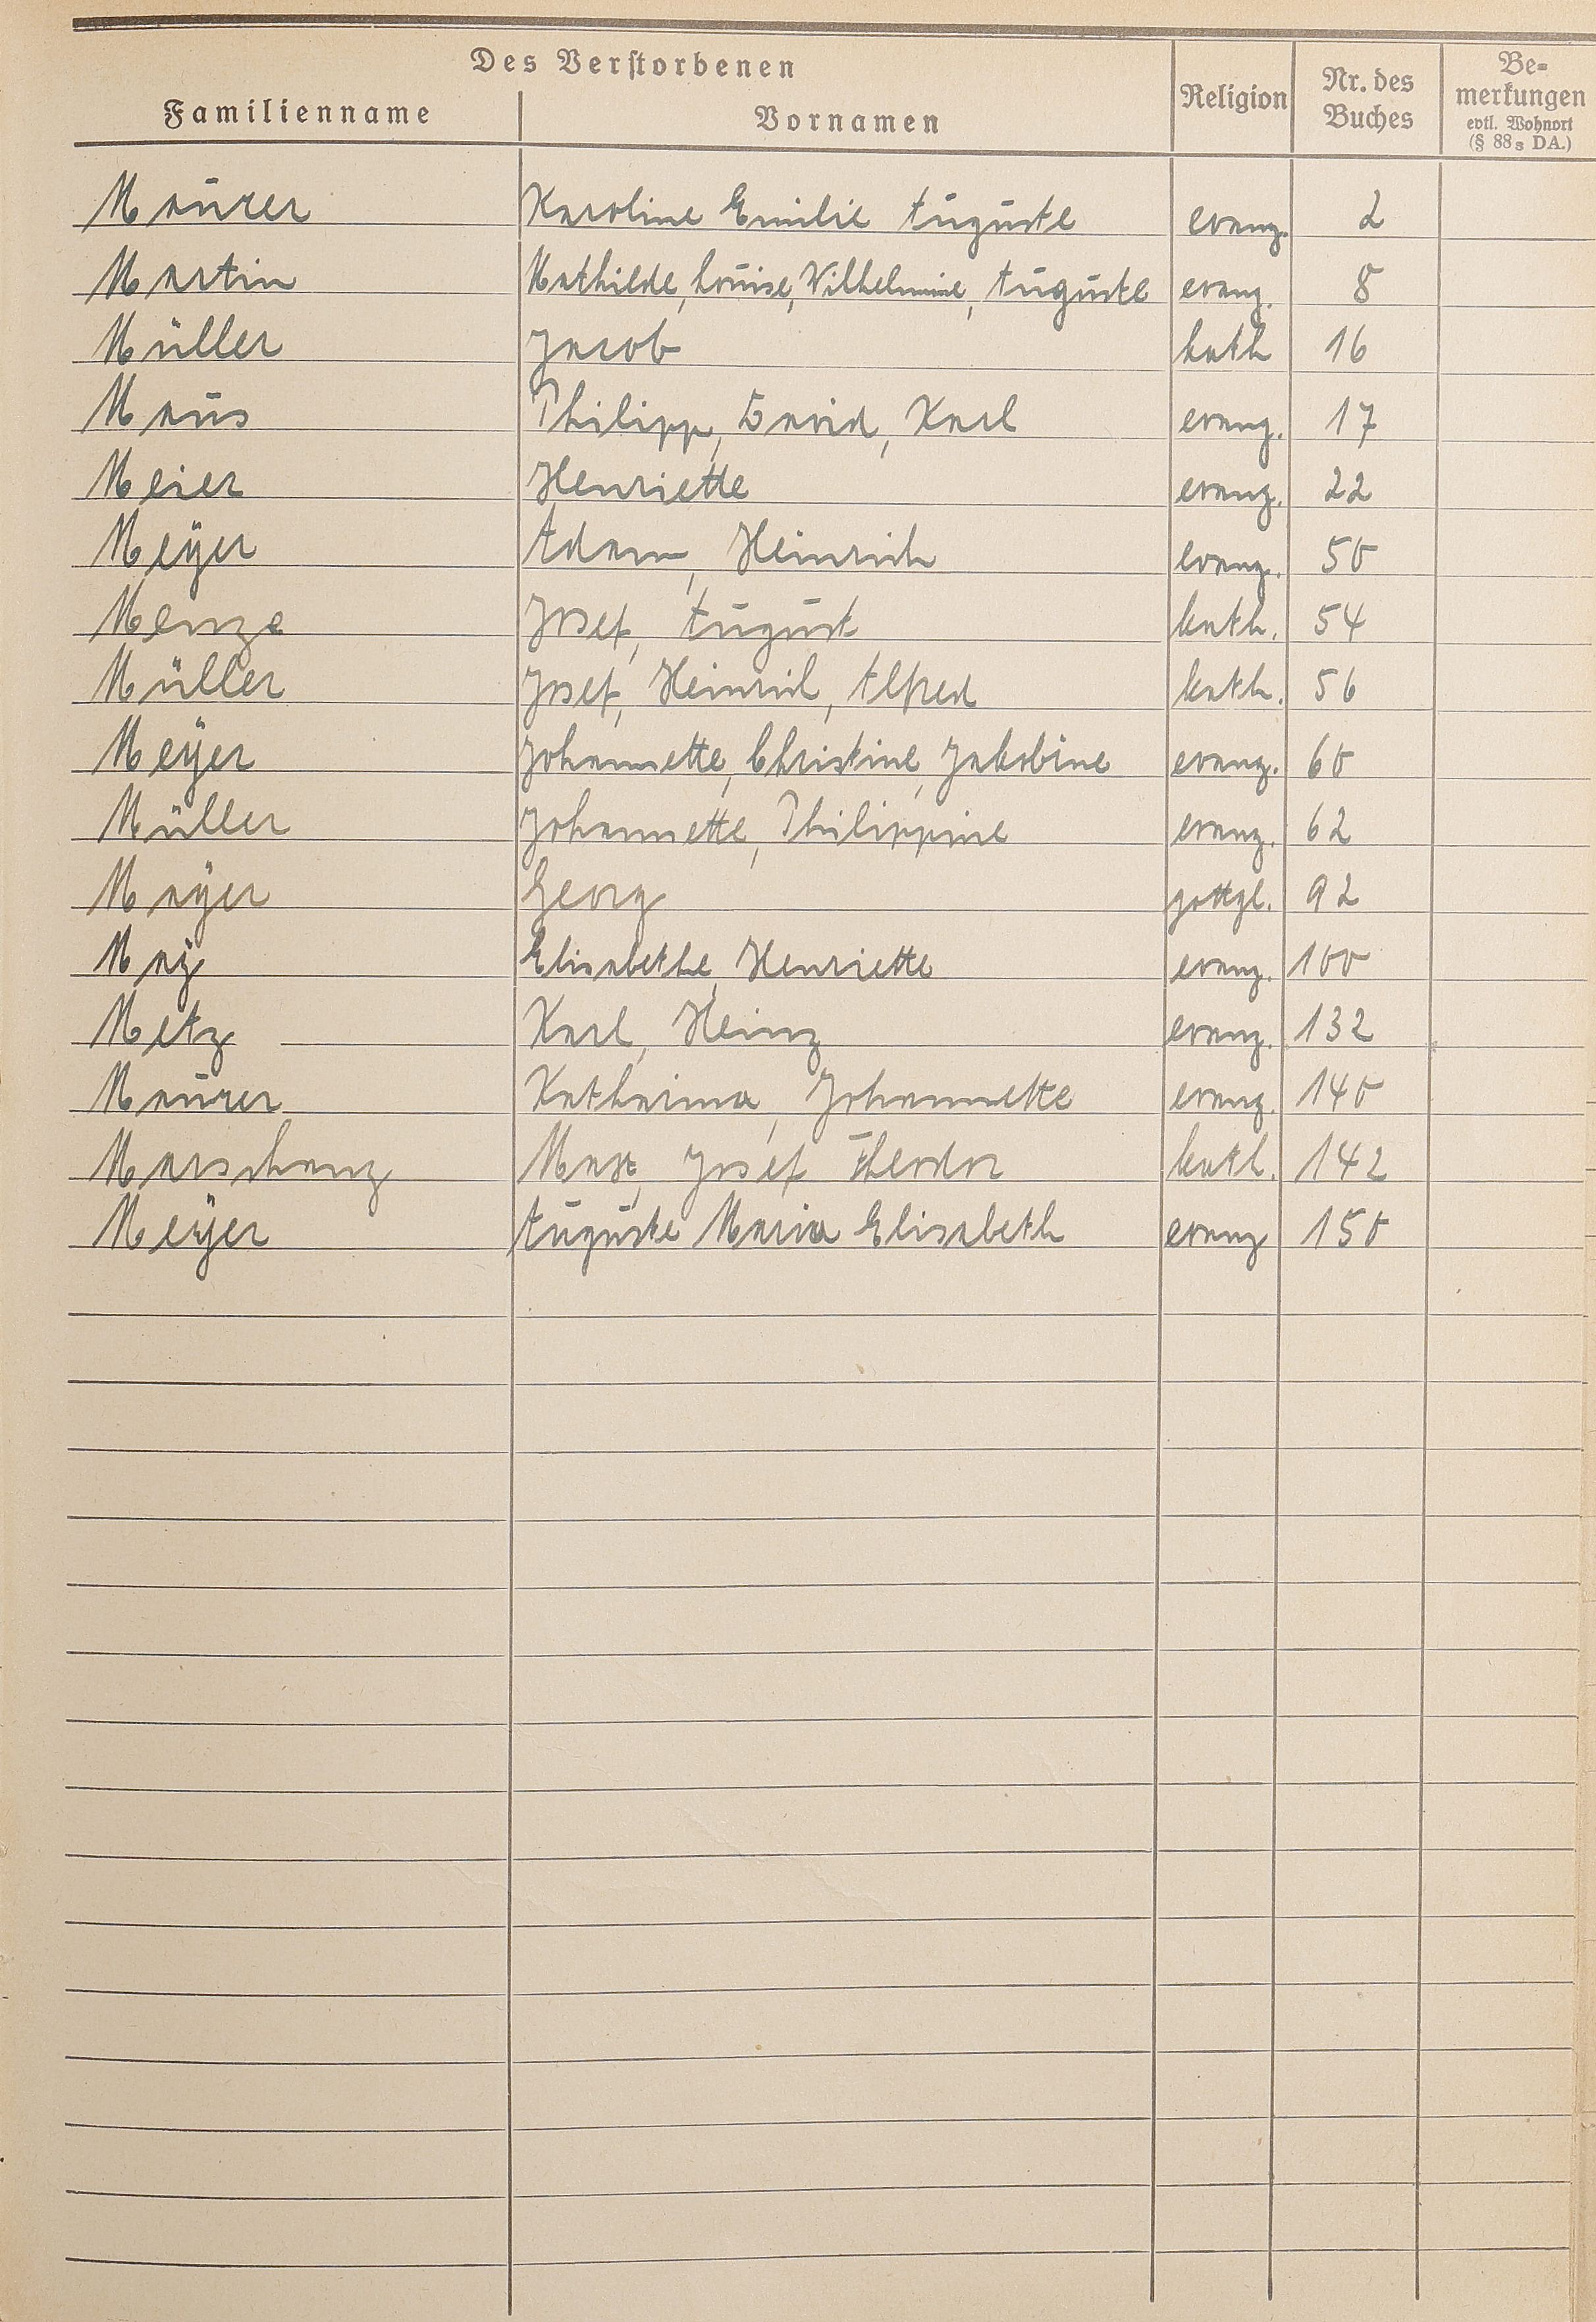 Des Verstorbenen
Familienname Vornamen Religion Nr. des Buches Bemerkungen evtl. Wohnort (§ 88s DA.)
Maurer Karoline Emilie Auguste evang. 2
Martin Mathilde, Louise, Wilhelmine, Auguste evang. 8
Müller Jacob kath 16
Maus Philipp, David, Karl evang. 17
Meier Henriette evang. 22
Meyer Adam, Heinrich evang. 50
Menze Josef, August kath. 54
Müller Josef, Heinrich, Alfred kath. 56
Meyer Johannette, Christine, Jakobine evang. 60
Müller Johannette, Philippine evang. 62
Mayer Georg gottgl. 92
May Elisabethe, Henriette evang. 100
Metz Karl, Heinz evang. 132
Maurer Katharina, Johannette evang. 140
Marschang Max, Josef Theodor kath. 142
Meyer Auguste Maria Elisabeth evang 150